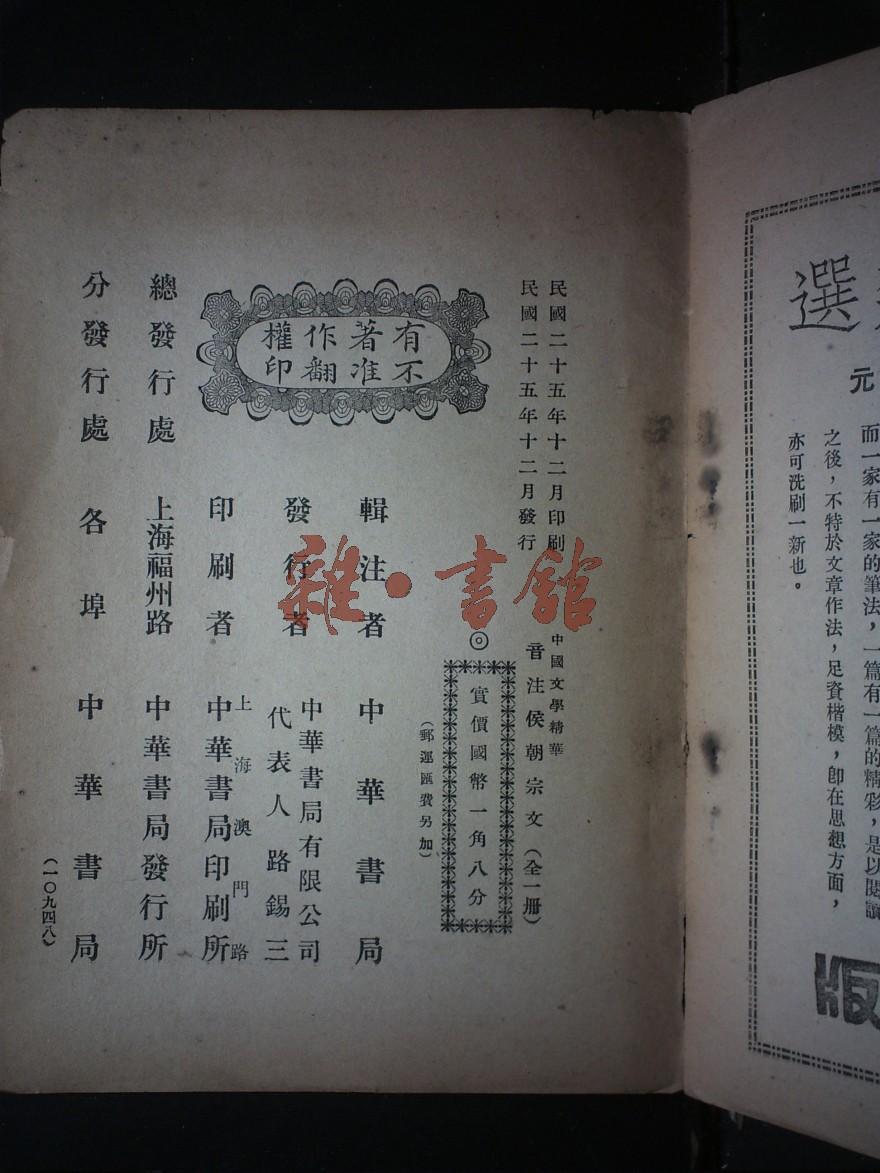 選
元
而一家有一家的筆法，一篇有一篇的精彩，是以閱讀
之後，不特於文章作法，足資楷模，卽在思想方面，
亦可洗刷一新也。
版
民國二十五年十二月印刷
民國二十五年十二月發行
中國文學精華
音注侯朝宗文（全一冊）
◎
實價國幣一角八分
（郵運匯費另加）
有著作權
不准翻印
輯注者 中華書局
發行者 中華書局有限公司
代表人路錫三
印刷者 上海澳門路
中華書局印刷所
總發行處 上海福州路 中華書局發行所
分發行處 各埠 中華書局
（一〇九四八）
雜·書館